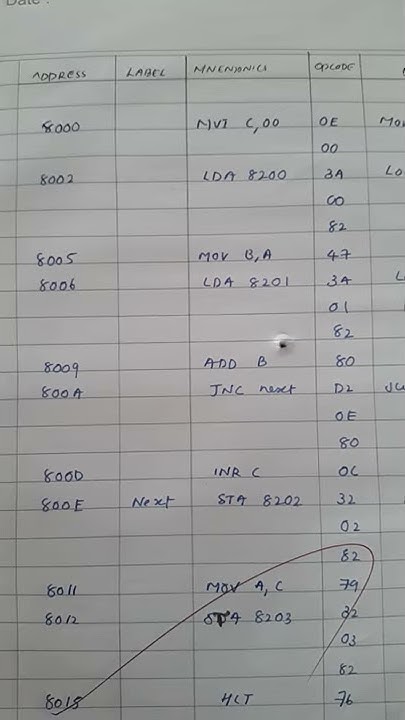 Date :
ADDRESS LABEL MNEMONICS OPCODE
8000 MVI C,00 OE Mo
00
8002 LDA 8200 3A Lo
00
82
8005 MOV B,A 47
8006 LDA 8201 3A L
01
82
8009 ADD B 80
800A JNC next D2 Ju
OE
80
800D INR C OC
800E Next STA 8202 32
02
82
8011 MOV A,C 79
8012 STA 8203 32
03
82
8015 HLT 76